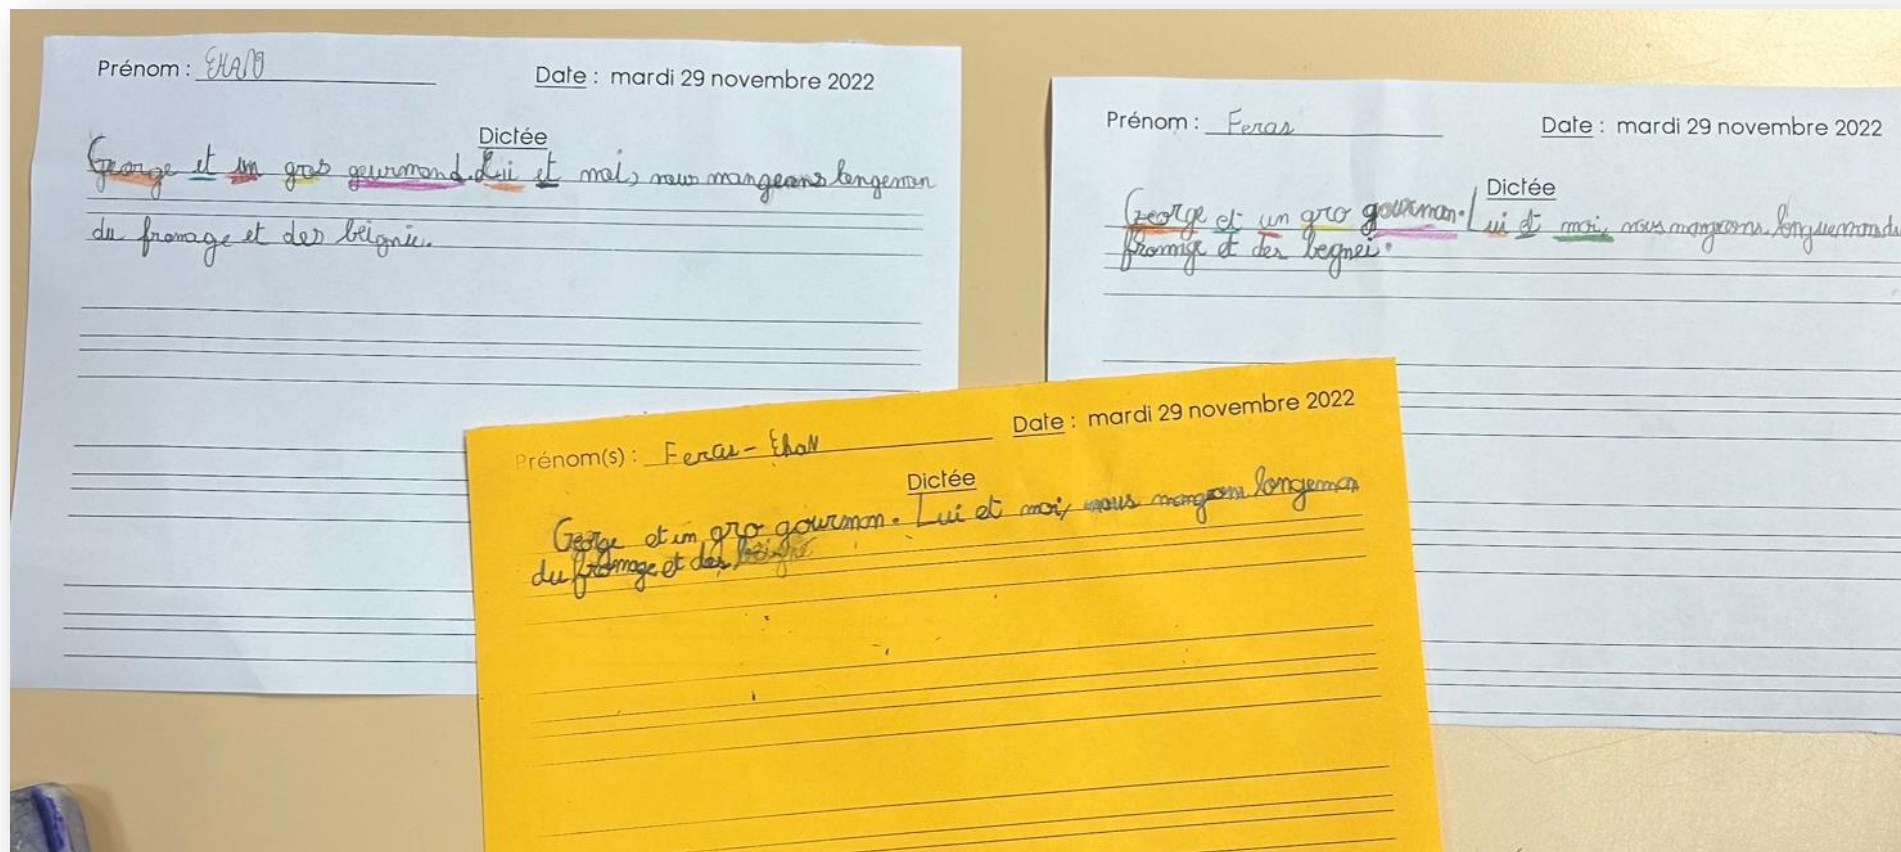 Prénom : EHAN
Date : mardi 29 novembre 2022
Dictée
George et un gros gourmand. Lui et moi, nous mangeons longeman
du fromage et des beignie.
Prénom : Feras
Date : mardi 29 novembre 2022
Dictée
George et un gro gourman. Lui et moi, nous mangeons longuemans du
fromige et des begnei.
Prénom(s) : Feras - EhaN
Date : mardi 29 novembre 2022
Dictée
George et un gro gourman. Lui et moi, nous mangeons longeman
du fromage et des